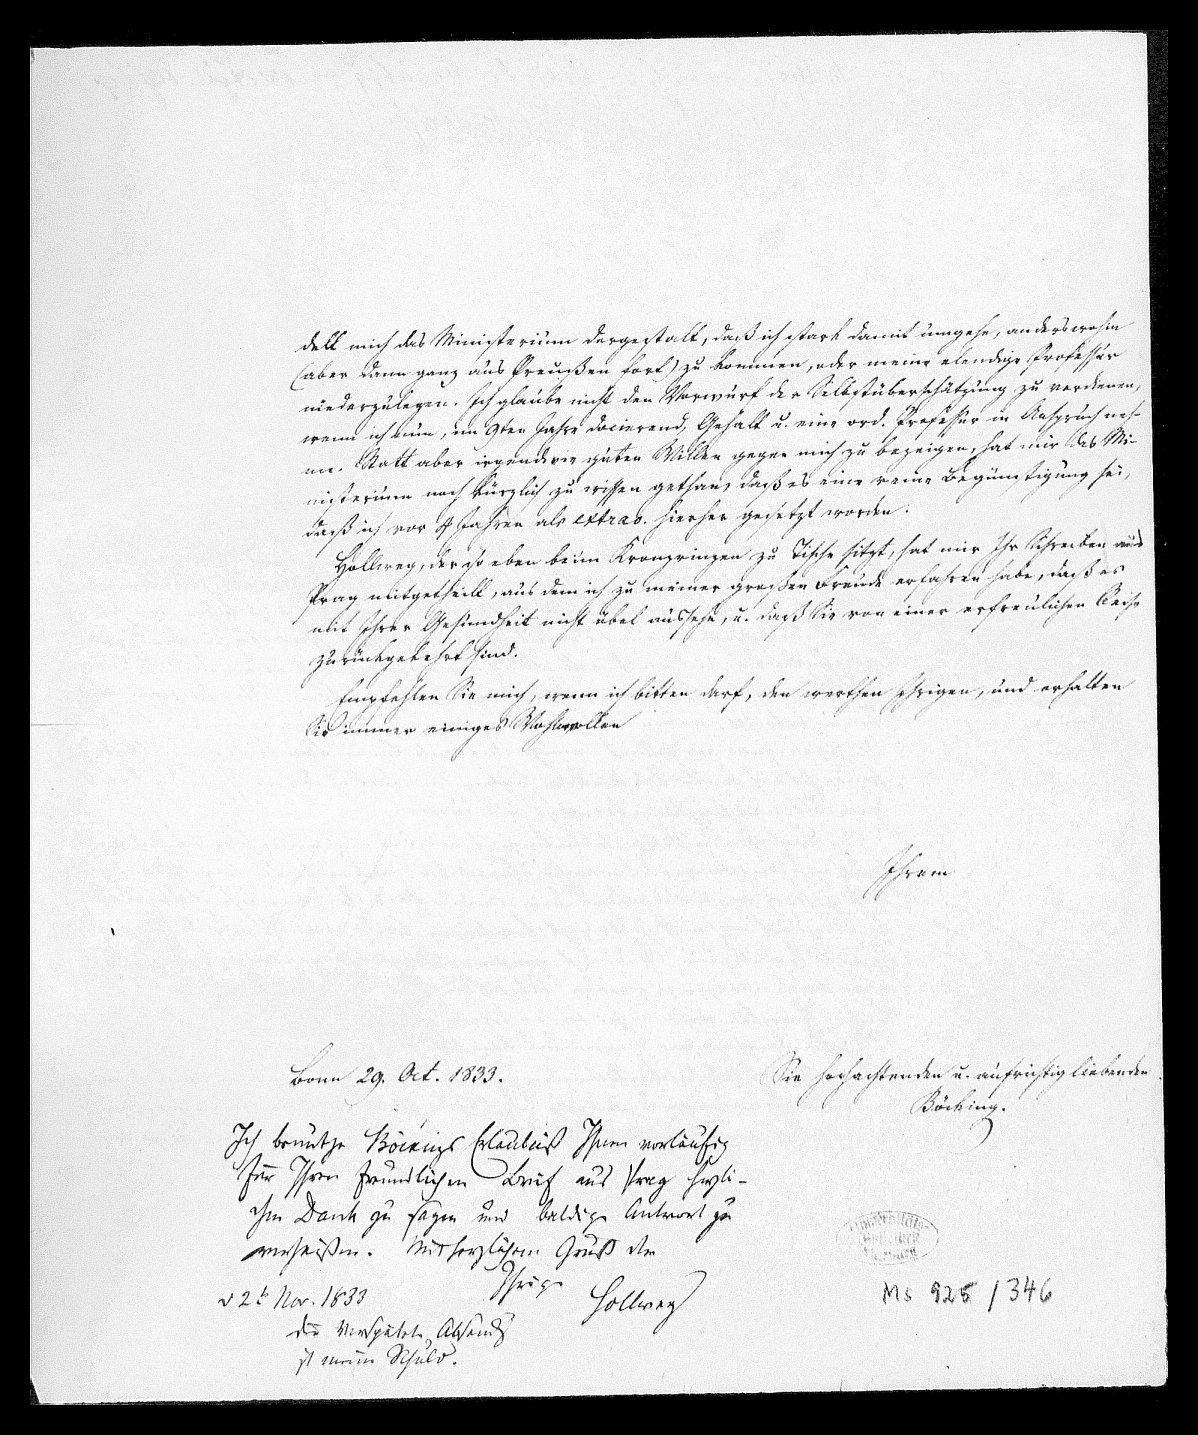 delt mich das Ministerium dergestalt, daß ich stark damit umgehe, anderswohin
(aber dann ganz aus Preußen fort) zu kommen, oder meine elendige Professur
niederzulegen. Ich glaube nicht den Vorwurf der Selbstüberschätzung zu verdienen,
wenn ich nun, im 9ten Jahre docierend, Gehalt u. eine ord. Professur in Anspruch neh-
me. Statt aber irgendwie guten Willen gegen mich zu bezeigen, hat mir das Mi-
nisterium noch kürzlich zu wissen gethan, daß es eine reine Begünstigung sei,
daß ich vor 4 Jahren als extrao. hierher gesetzt worden.
Hollweg, der so eben beim Kronprinzen zu Tische sitzt, hat mir Ihr Schreiben aus
Prag mitgetheilt, aus dem ich zu meiner großen Freude erfahren habe, daß es
mit Ihrer Gesundheit nicht übel aussehe, u. daß Sie von einer erfreulichen Reise
zurückgekehrt sind.
Empfehlen Sie mich, wenn ich bitten darf, den werthen Ihrigen, und erhalten
Sie immer einiges Wohlwollen
Ihrem
Bonn 29. Oct. 1833.
Sie hochachtenden u. aufrichtig liebenden
Böcking.
Ich benutze Böckings Erlaubniß Ihnen vorläufig
für Ihren freundlichen Brief aus Prag herzli-
chen Dank zu sagen und baldige Antwort zu
verheißen. Mit herzlichem Gruß der
Ihrige
Hollweg
d 2t Nov. 1833
die verspätete Absendg
ist meine Schuld.
Ms 925 / 346